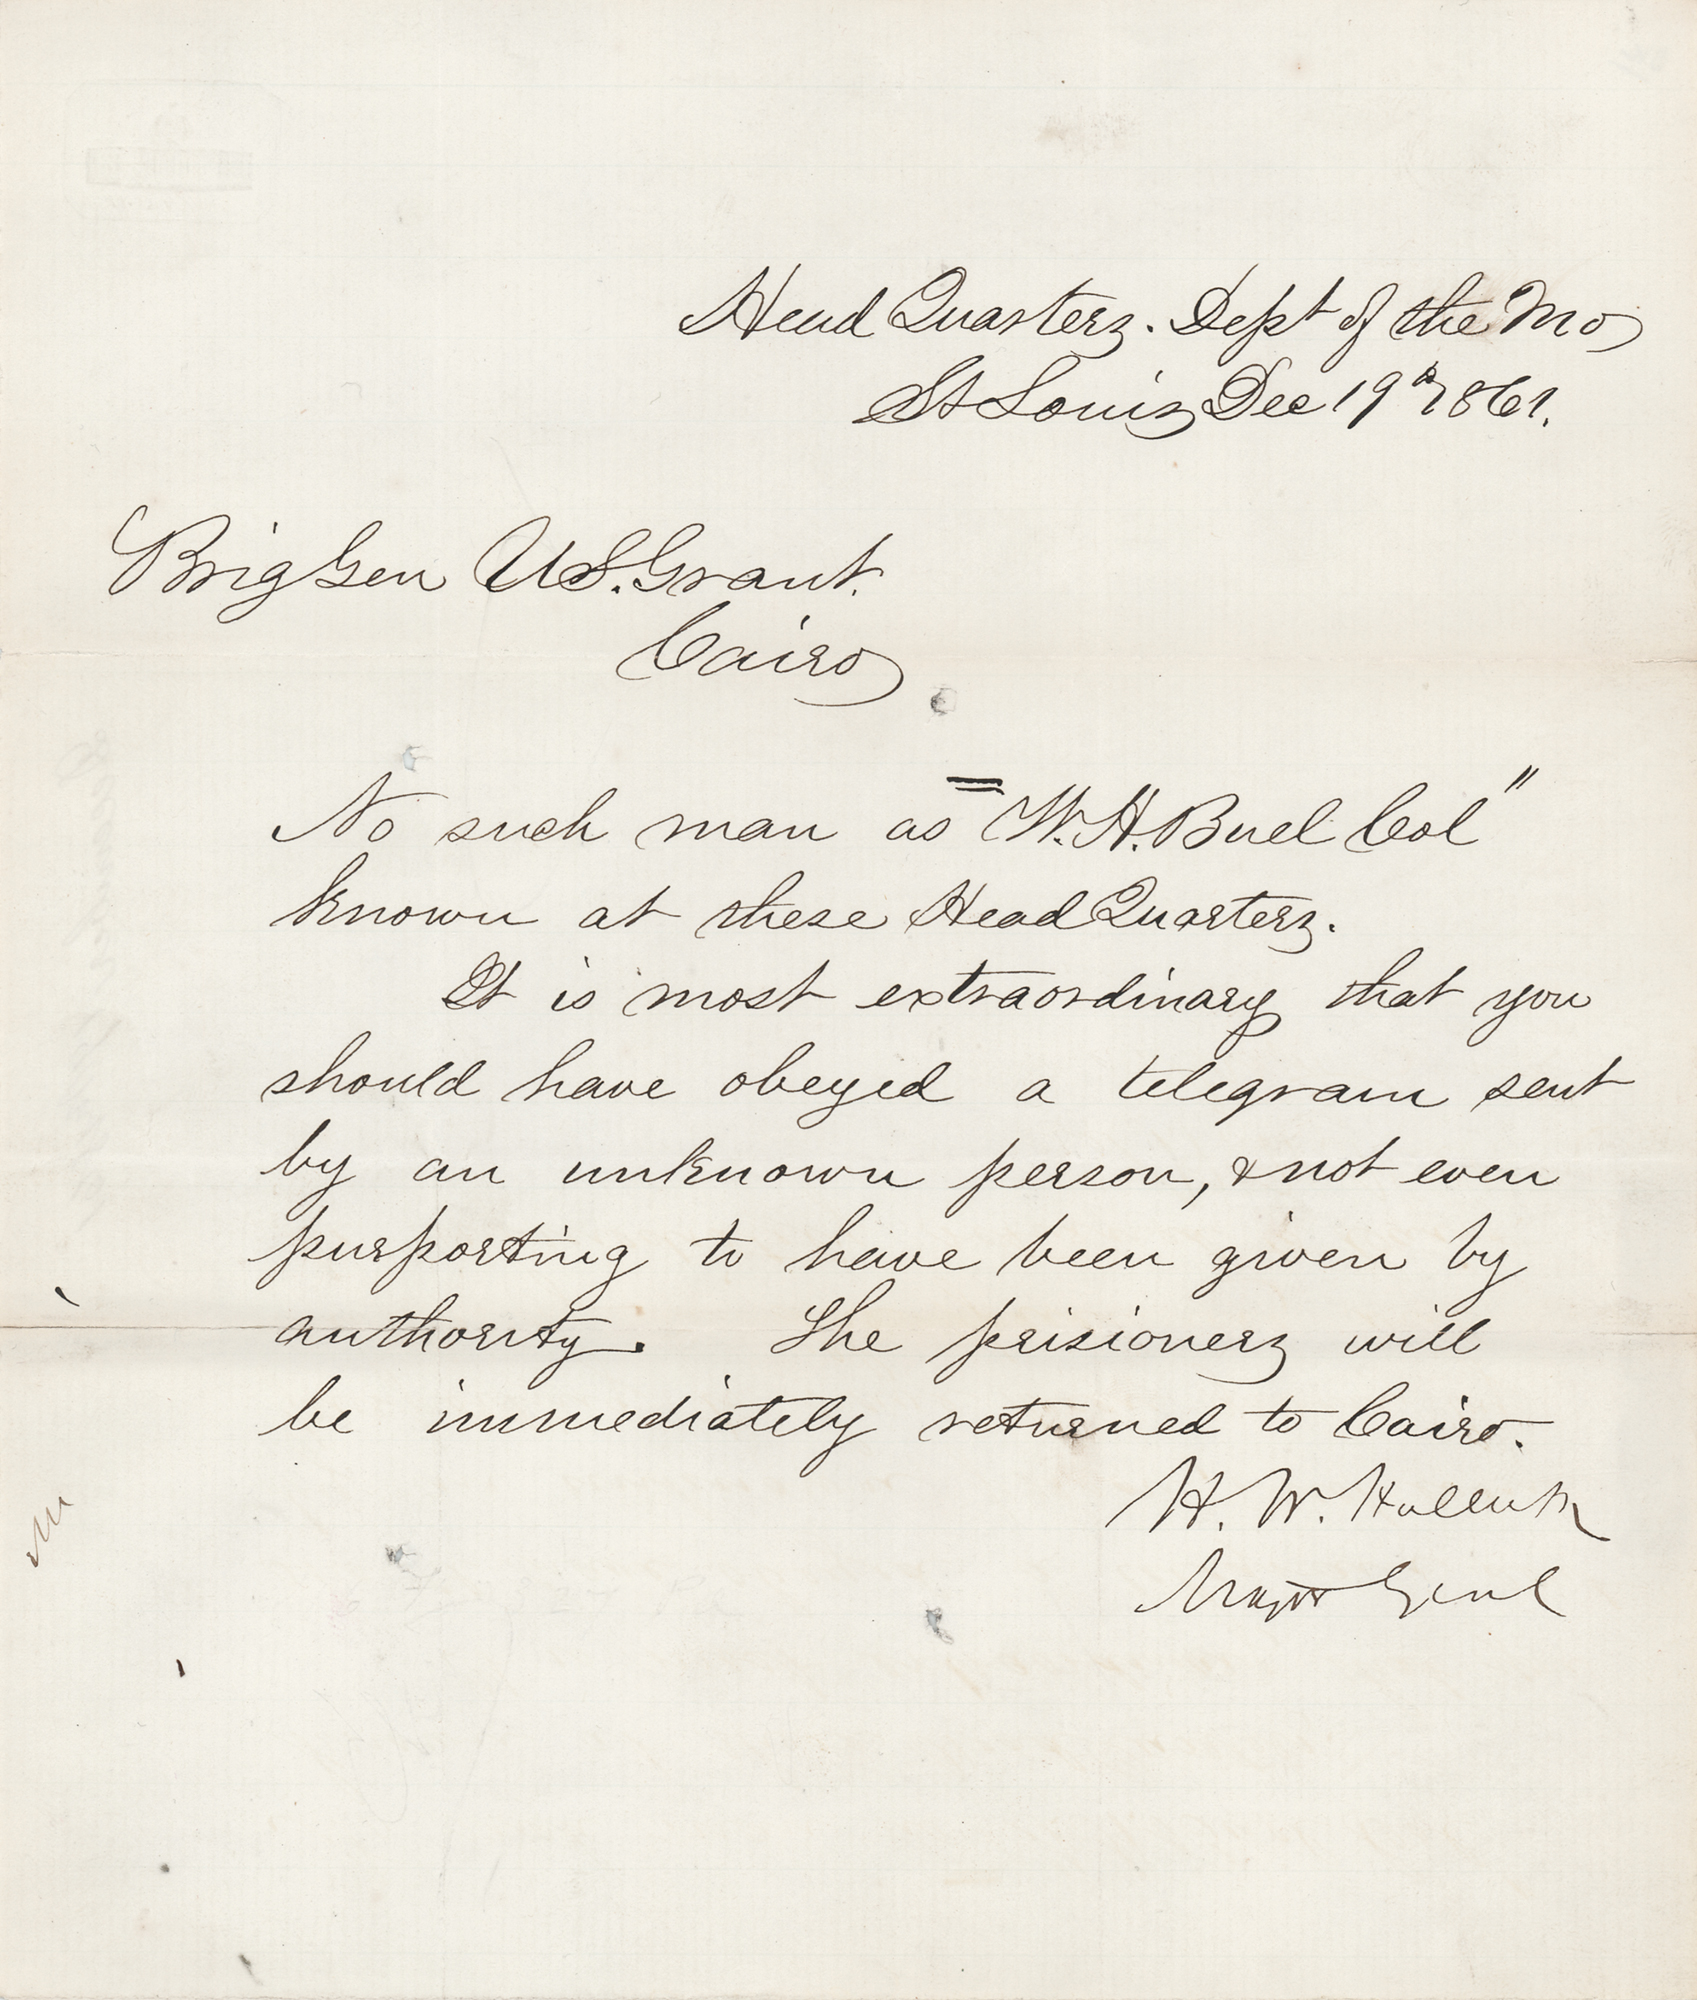 Head Quarters. Dept of the Mo
St Louis Dec 19th 1861.
Brig Gen U S. Grant.
Cairo
No such man as "W. H. Buel Col"
known at these Head Quarters.
It is most extraordinary that you
should have obeyed a telegram sent
by an unknown person, & not even
purporting to have been given by
authority. The prisioners will
be immediately returned to Cairo.
H. W. Halleck
Major Genl